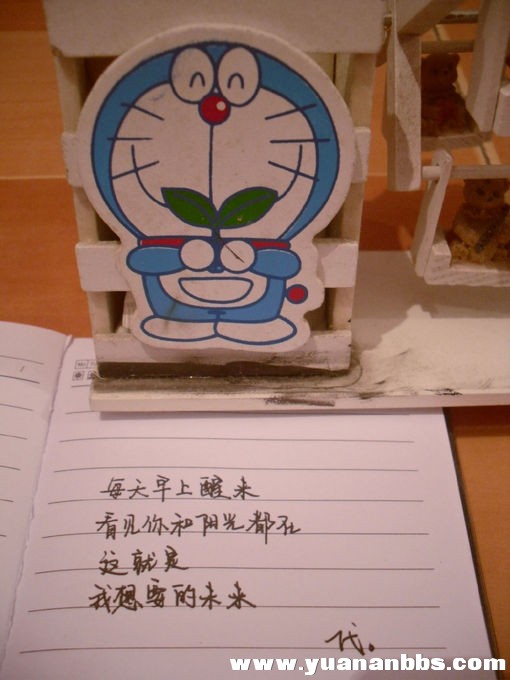 每天早上醒来
看见你和阳光都在
这就是
我想要的未来
代。
www.yuananbbs.com